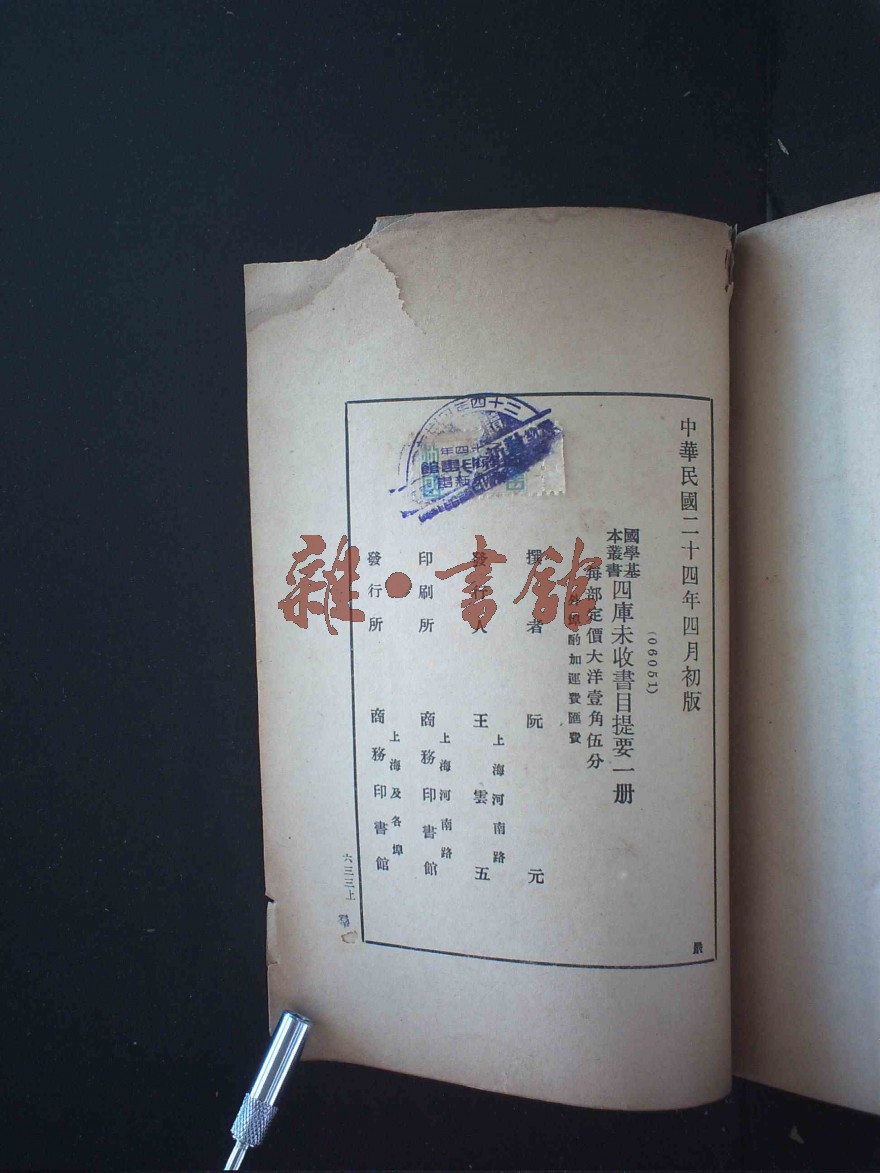 中華民國二十四年四月初版
(06051)
國學基
本叢書
四庫未收書目提要一册
每部定價大洋壹角伍分
酌加運費匯費
撰者 阮元
上海河南路
發行人 王雲五
上海河南路
印刷所 商務印書館
上海及各埠
發行所 商務印書館
六三三上
嚴
雜·書館